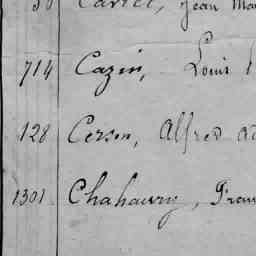 50 Cartel, Jean Ma
714 Cazin, Louis
128 Cerson, Alfred
1301 Chahaury, Fran